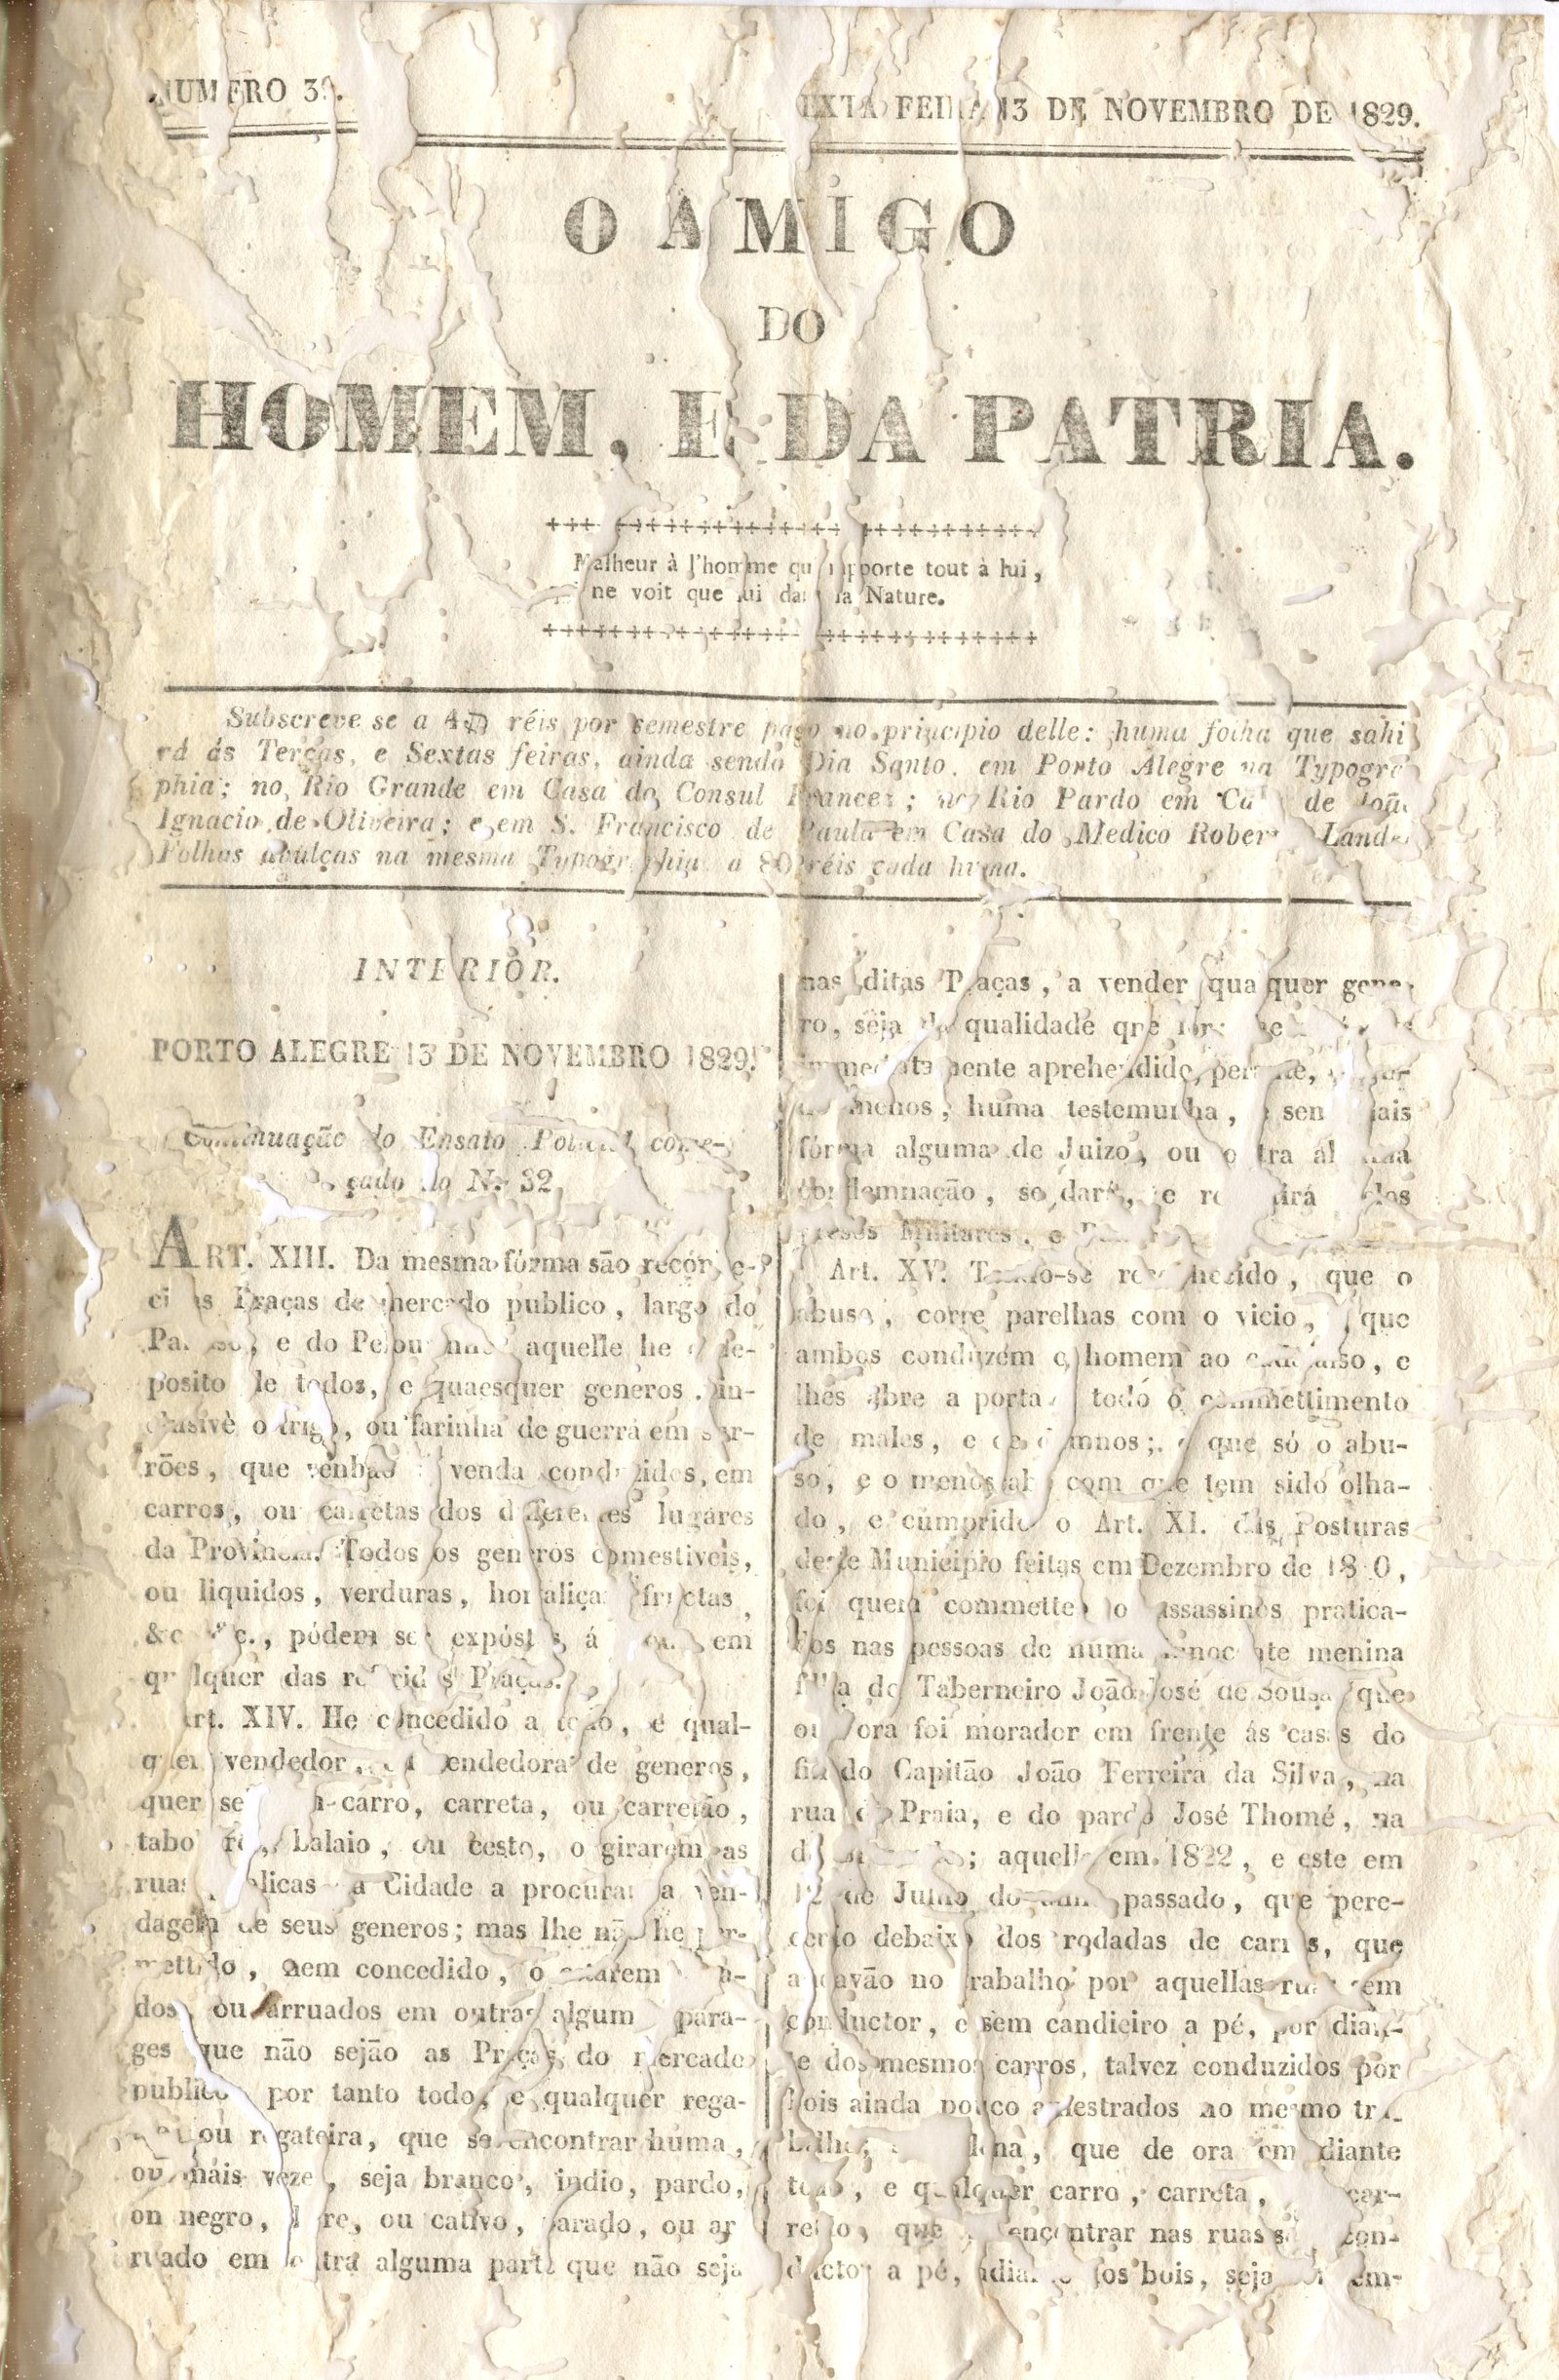 NUMERO 39.
SEXTA FEIRA 13 DE NOVEMBRO DE 1829.
O AMIGO
DO
HOMEM, E DA PATRIA.
Malheur à l'homme qui rapporte tout à lui,
ne voit que lui dans la Nature.
Subscreve se a 4 réis por semestre pago no principio delle: huma folha que sahi
rá ás Terças, e Sextas feiras, ainda sendo Dia Santo, em Porto Alegre na Typogra
phia; no Rio Grande em Casa do Consul Francez; no Rio Pardo em Casa de João
Ignacio de Oliveira; e em S. Francisco de Paula em Casa do Medico Robert Landel
Folhas avulças na mesma Typographia a 80 réis cada huma.
INTERIOR.
PORTO ALEGRE 13 DE NOVEMBRO 1829.
Continuação do Ensaio Policial, come-
çado do N. 32
ART. XIII. Da mesma fórma são
as Praças de mercado publico, largo do
e do Pelourinho aquelle he de-
posito de todos, e quaesquer generos, in-
clusivè o trigo, ou farinha de guerra em sur-
rões, que venhão á venda conduzidos, em
carros, ou carretas dos differentes lugares
da Provincia. Todos os generos comestiveis,
ou liquidos, verduras, hortaliças fructas,
&c. &c., pódem ser expóstos á em
qualquer das referidas Praças.
Art. XIV. He concedido a todo, e qual-
quer vendedor, ou vendedora de generos,
quer seja em carro, carreta, ou carretão,
taboleiro, balaio, ou cesto, o girarem as
ruas publicas da Cidade a procurar a ven-
dagem de seus generos; mas lhe não he per-
mettido, nem concedido, o estarem
ou arruados em outras algum para-
ges que não sejão as Praças do mercado
publico por tanto todo, e qualquer rega-
ou regateira, que se encontrar huma,
ou mais vezes, seja branco, indio, pardo,
ou negro, livre, ou cativo, parado, ou ar
ruado em outra alguma parte que não seja
nas ditas Praças, a vender qualquer gene-
ro, seja da qualidade que
immediatamente aprehendido, perante,
menos, huma testemunha, e sem mais
fórma alguma de Juizo, ou outra alguma
condemnação, se dará, e repartirá pelos
presos Militares, e
Art. XV. Tendo-se reconhecido, que o
abuso, corre parelhas com o vicio, que
ambos conduzem o homem ao cadafalso, e
lhes abre a porta a todo o commettimento
de males, e de damnos; e que só o abu-
so, e o com que tem sido olha-
do, e cumprido o Art. XI. das Posturas
deste Municipio feitas em Dezembro de
foi quem commetteo o assassinos pratica-
dos nas pessoas de huma innocente menina
filha do Taberneiro João José de Sousa que
outrora foi morador em frente ás casas do
findo Capitão João Ferreira da Silva, na
rua da Praia, e do pardo José Thomé, na
aquella em 1822, e este em
12 de Julho do anno passado, que pere-
cerão debaixo dos rodadas de carros, que
andavão no trabalho por aquellas ruas sem
conductor, e sem candieiro a pé, por dian-
te dos mesmos carros, talvez conduzidos por
bois ainda pouco adestrados ao mesmo tra-
balho, que de ora em diante
todo, e qualquer carro, carreta, ou car-
retão, que se encontrar nas ruas sem con-
ductor a pé, adiante dos bois, seja em-